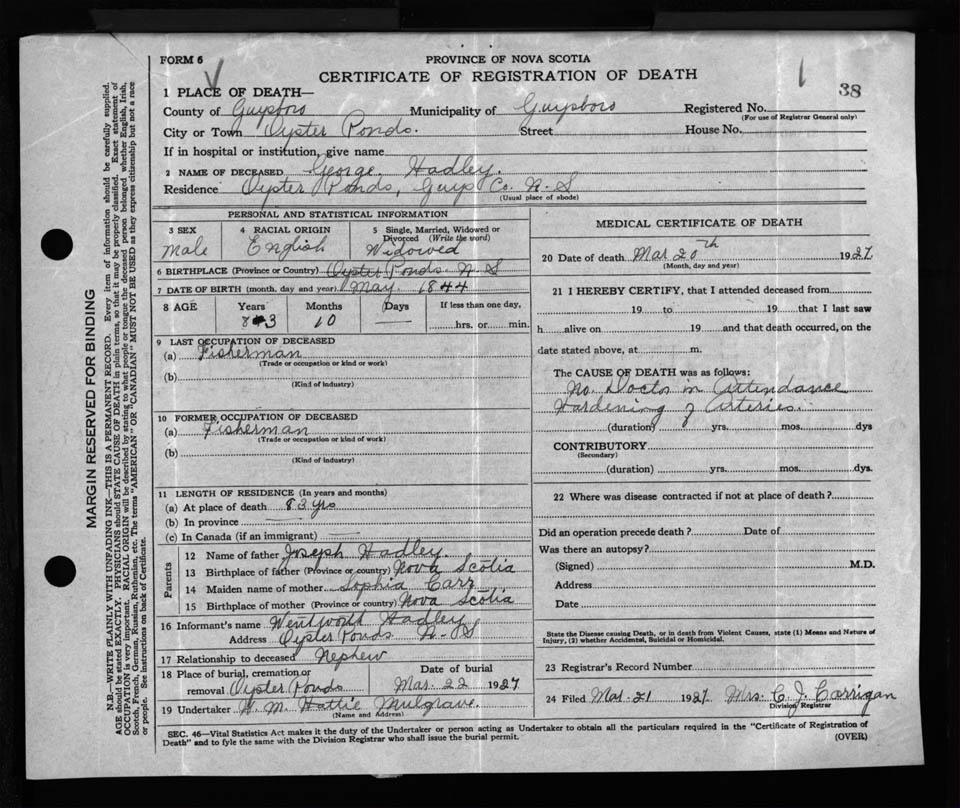 FORM 6
PROVINCE OF NOVA SCOTIA
CERTIFICATE OF REGISTRATION OF DEATH
38
1 PLACE OF DEATH—
County of Guysboro Municipality of Guysboro Registered No.
(For use of Registrar General only)
City or Town Oyster Ponds. Street House No.
If in hospital or institution, give name
2 NAME OF DECEASED George Hadley.
Residence Oyster Ponds, Guys Co. N. S
(Usual place of abode)
PERSONAL AND STATISTICAL INFORMATION
3 SEX Male
4 RACIAL ORIGIN English
5 Single, Married, Widowed or Divorced (Write the word) Widowed
6 BIRTHPLACE (Province or Country) Oyster Ponds. N. S
7 DATE OF BIRTH (month, day and year) May. 1844
8 AGE Years Months Days If less than one day,
83 10 — hrs. or min.
9 LAST OCCUPATION OF DECEASED
(a) Fisherman
(Trade or occupation or kind or work)
(b)
(Kind of industry)
10 FORMER OCCUPATION OF DECEASED
(a) Fisherman
(Trade or occupation or kind of work)
(b)
(Kind of industry)
11 LENGTH OF RESIDENCE (In years and months)
(a) At place of death 83 yrs
(b) In province
(c) In Canada (if an immigrant) —
Parents
12 Name of father Joseph Hadley.
13 Birthplace of father (Province or country) Nova Scotia
14 Maiden name of mother Sophia Carr
15 Birthplace of mother (Province or country) Nova Scotia
16 Informant's name Wentworth Hadley
Address Oyster Ponds N. S
17 Relationship to deceased Nephew
18 Place of burial, cremation or removal Oyster Ponds
Date of burial Mar. 22 1927
19 Undertaker W. M. Hattie Mulgrave.
(Name and Address)
MEDICAL CERTIFICATE OF DEATH
20 Date of death Mar 20th 1927
(Month, day and year)
21 I HEREBY CERTIFY, that I attended deceased from
19 to 19 that I last saw
h alive on 19 and that death occurred, on the
date stated above, at m.
The CAUSE OF DEATH was as follows:
No. Doctor in Attendance
Hardening of Arteries.
(duration) yrs. mos. dys
CONTRIBUTORY
(Secondary)
(duration) yrs. mos. dys.
22 Where was disease contracted if not at place of death?
Did an operation precede death? Date of
Was there an autopsy?
(Signed) M.D.
Address
Date
State the Disease causing Death, or in death from Violent Causes, state (1) Means and Nature of
Injury, (2) whether Accidental, Suicidal or Homicidal.
23 Registrar's Record Number
24 Filed Mar. 21 1927. Mrs. C. J. Carrigan
Division Registrar
SEC. 46—Vital Statistics Act makes it the duty of the Undertaker or person acting as Undertaker to obtain all the particulars required in the "Certificate of Registration of
Death" and to fyle the same with the Division Registrar who shall issue the burial permit.
(OVER)
MARGIN RESERVED FOR BINDING
N.B.—WRITE PLAINLY WITH UNFADING INK—THIS IS A PERMANENT RECORD. Every item of information should be carefully supplied.
AGE should be stated EXACTLY. PHYSICIANS should STATE CAUSE OF DEATH in plain terms, so that it may be properly classified. Exact statement of
OCCUPATION is very important. RACIAL ORIGIN will be described by stating to what people or tongue the deceased person belonged, whether English, Irish,
Scotch, French, German, Russian, Ruthenian, etc. The terms "AMERICAN" or "CANADIAN" MUST NOT BE USED as they express citizenship but not a race
or people. See instructions on back of Certificate.